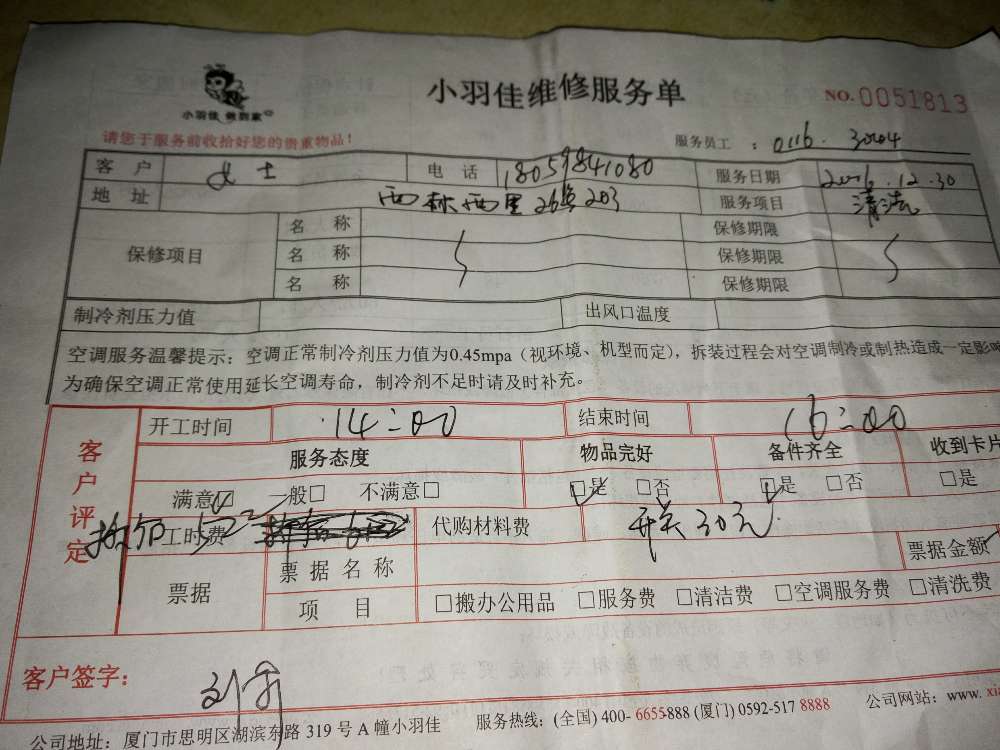 小羽佳维修服务单
NO.0051813
小羽佳 做到家
请您于服务前收拾好您的贵重物品!
服务员工 : 0116. 3004
客户 女士 电话 18059841080 服务日期 2016.12.30
地址 西林西里26# 203 服务项目 清洗
保修项目 名称 保修期限
名称 保修期限
名称 保修期限
制冷剂压力值 出风口温度
空调服务温馨提示：空调正常制冷剂压力值为0.45mpa（视环境、机型而定），拆装过程会对空调制冷或制热造成一定影响
为确保空调正常使用延长空调寿命，制冷剂不足时请及时补充。
客户评定
开工时间 14:00 结束时间 16:00
服务态度 物品完好 备件齐全 收到卡片
满意☑ 一般□ 不满意□ ☑是 □否 ☑是 □否 □是
工时费 代购材料费 开关30元
票据 票据名称 票据金额
项目 □搬办公用品 □服务费 □清洁费 □空调服务费 □清洗费
客户签字：
公司地址：厦门市思明区湖滨东路 319 号 A 幢小羽佳 服务热线：(全国) 400- 6655-888 (厦门) 0592-517 8888 公司网站：www. xia